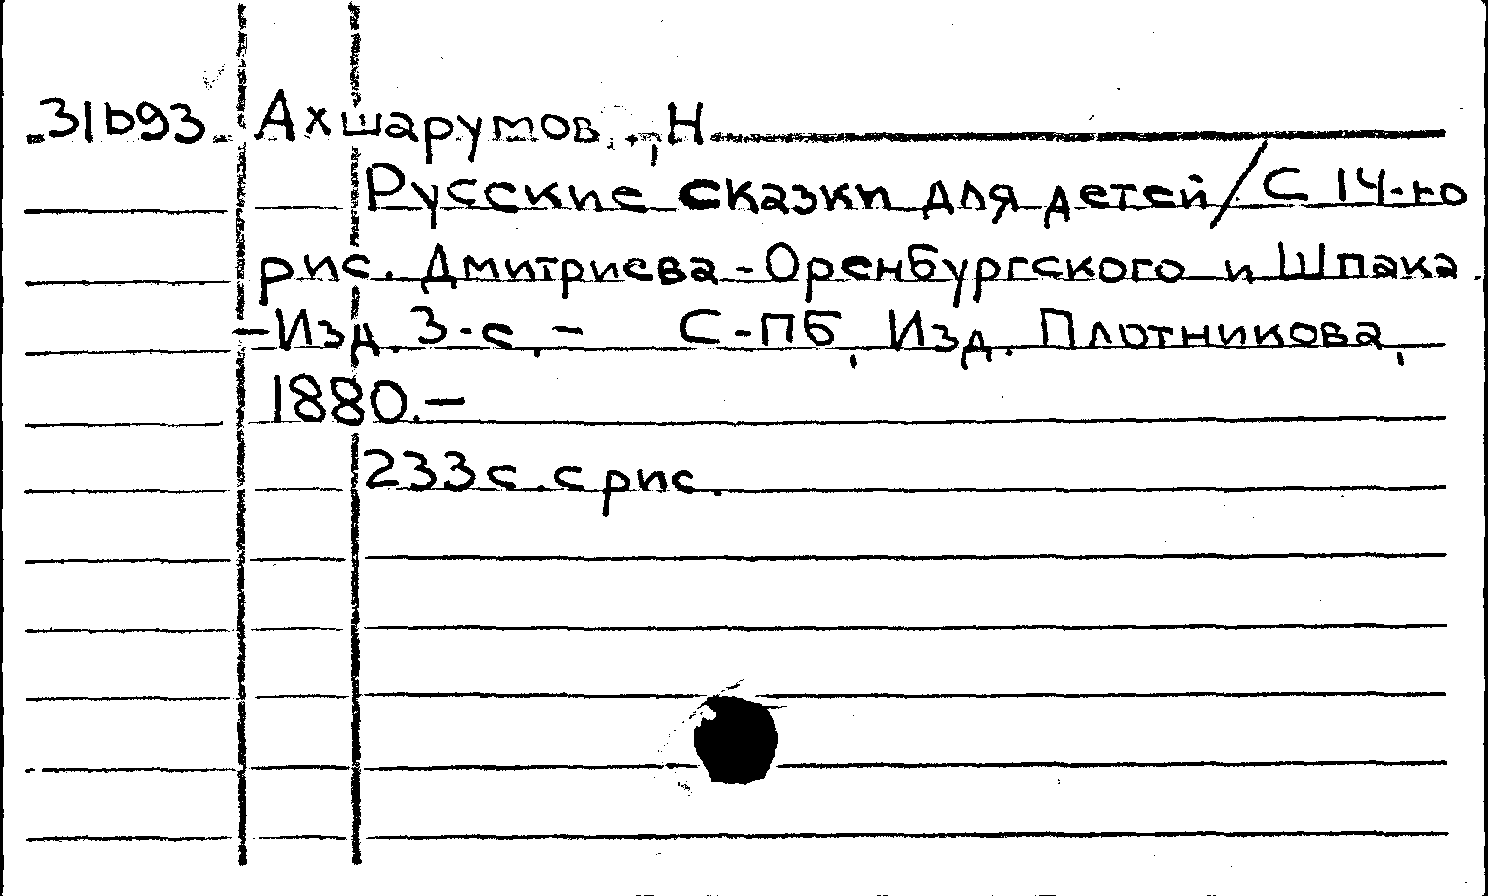 31b93 Ахшарумов, Н
Русские сказки для детей/С 14-ю
рис. Дмитриева-Оренбургского и Шпака.
-Изд. 3-е, - С-ПБ, Изд. Плотникова,
1880.-
233с. с рис.